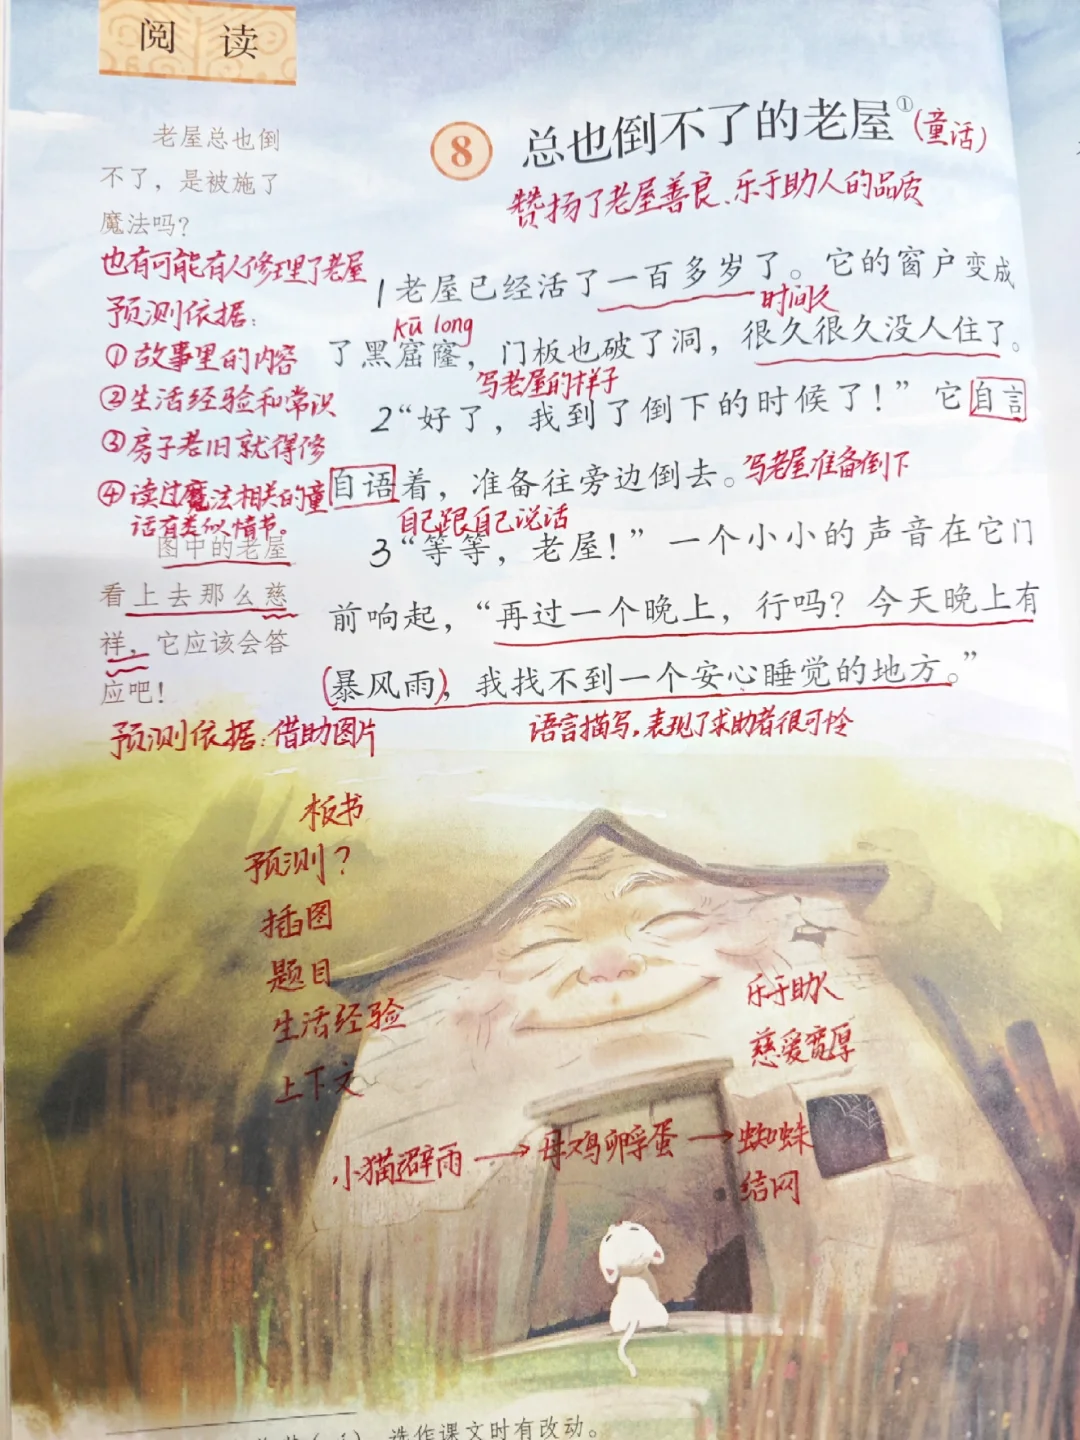 阅 读
8 总也倒不了的老屋①(童话)
赞扬了老屋善良、乐于助人的品质
老屋总也倒
不了，是被施了
魔法吗？
也有可能有人修理了老屋
预测依据：
①故事里的内容
②生活经验和常识
③房子老旧就得修
④读过魔法相关的童
话有类似情节。
图中的老屋
看上去那么慈
祥，它应该会答
应吧！
预测依据：借助图片
1老屋已经活了一百多岁了。它的窗户变成
时间久
kū long
了黑窟窿，门板也破了洞，很久很久没人住了。
写老屋的样子
2“好了，我到了倒下的时候了！”它自言
自语着，准备往旁边倒去。写老屋准备倒下
自己跟自己说话
3“等等，老屋！”一个小小的声音在它门
前响起，“再过一个晚上，行吗？今天晚上有
(暴风雨)，我找不到一个安心睡觉的地方。”
语言描写，表现了求助者很可怜
板书
预测？
插图
题目
生活经验
上下文
乐于助人
慈爱宽厚
小猫避雨→母鸡孵蛋→蜘蛛
结网
选作课文时有改动。